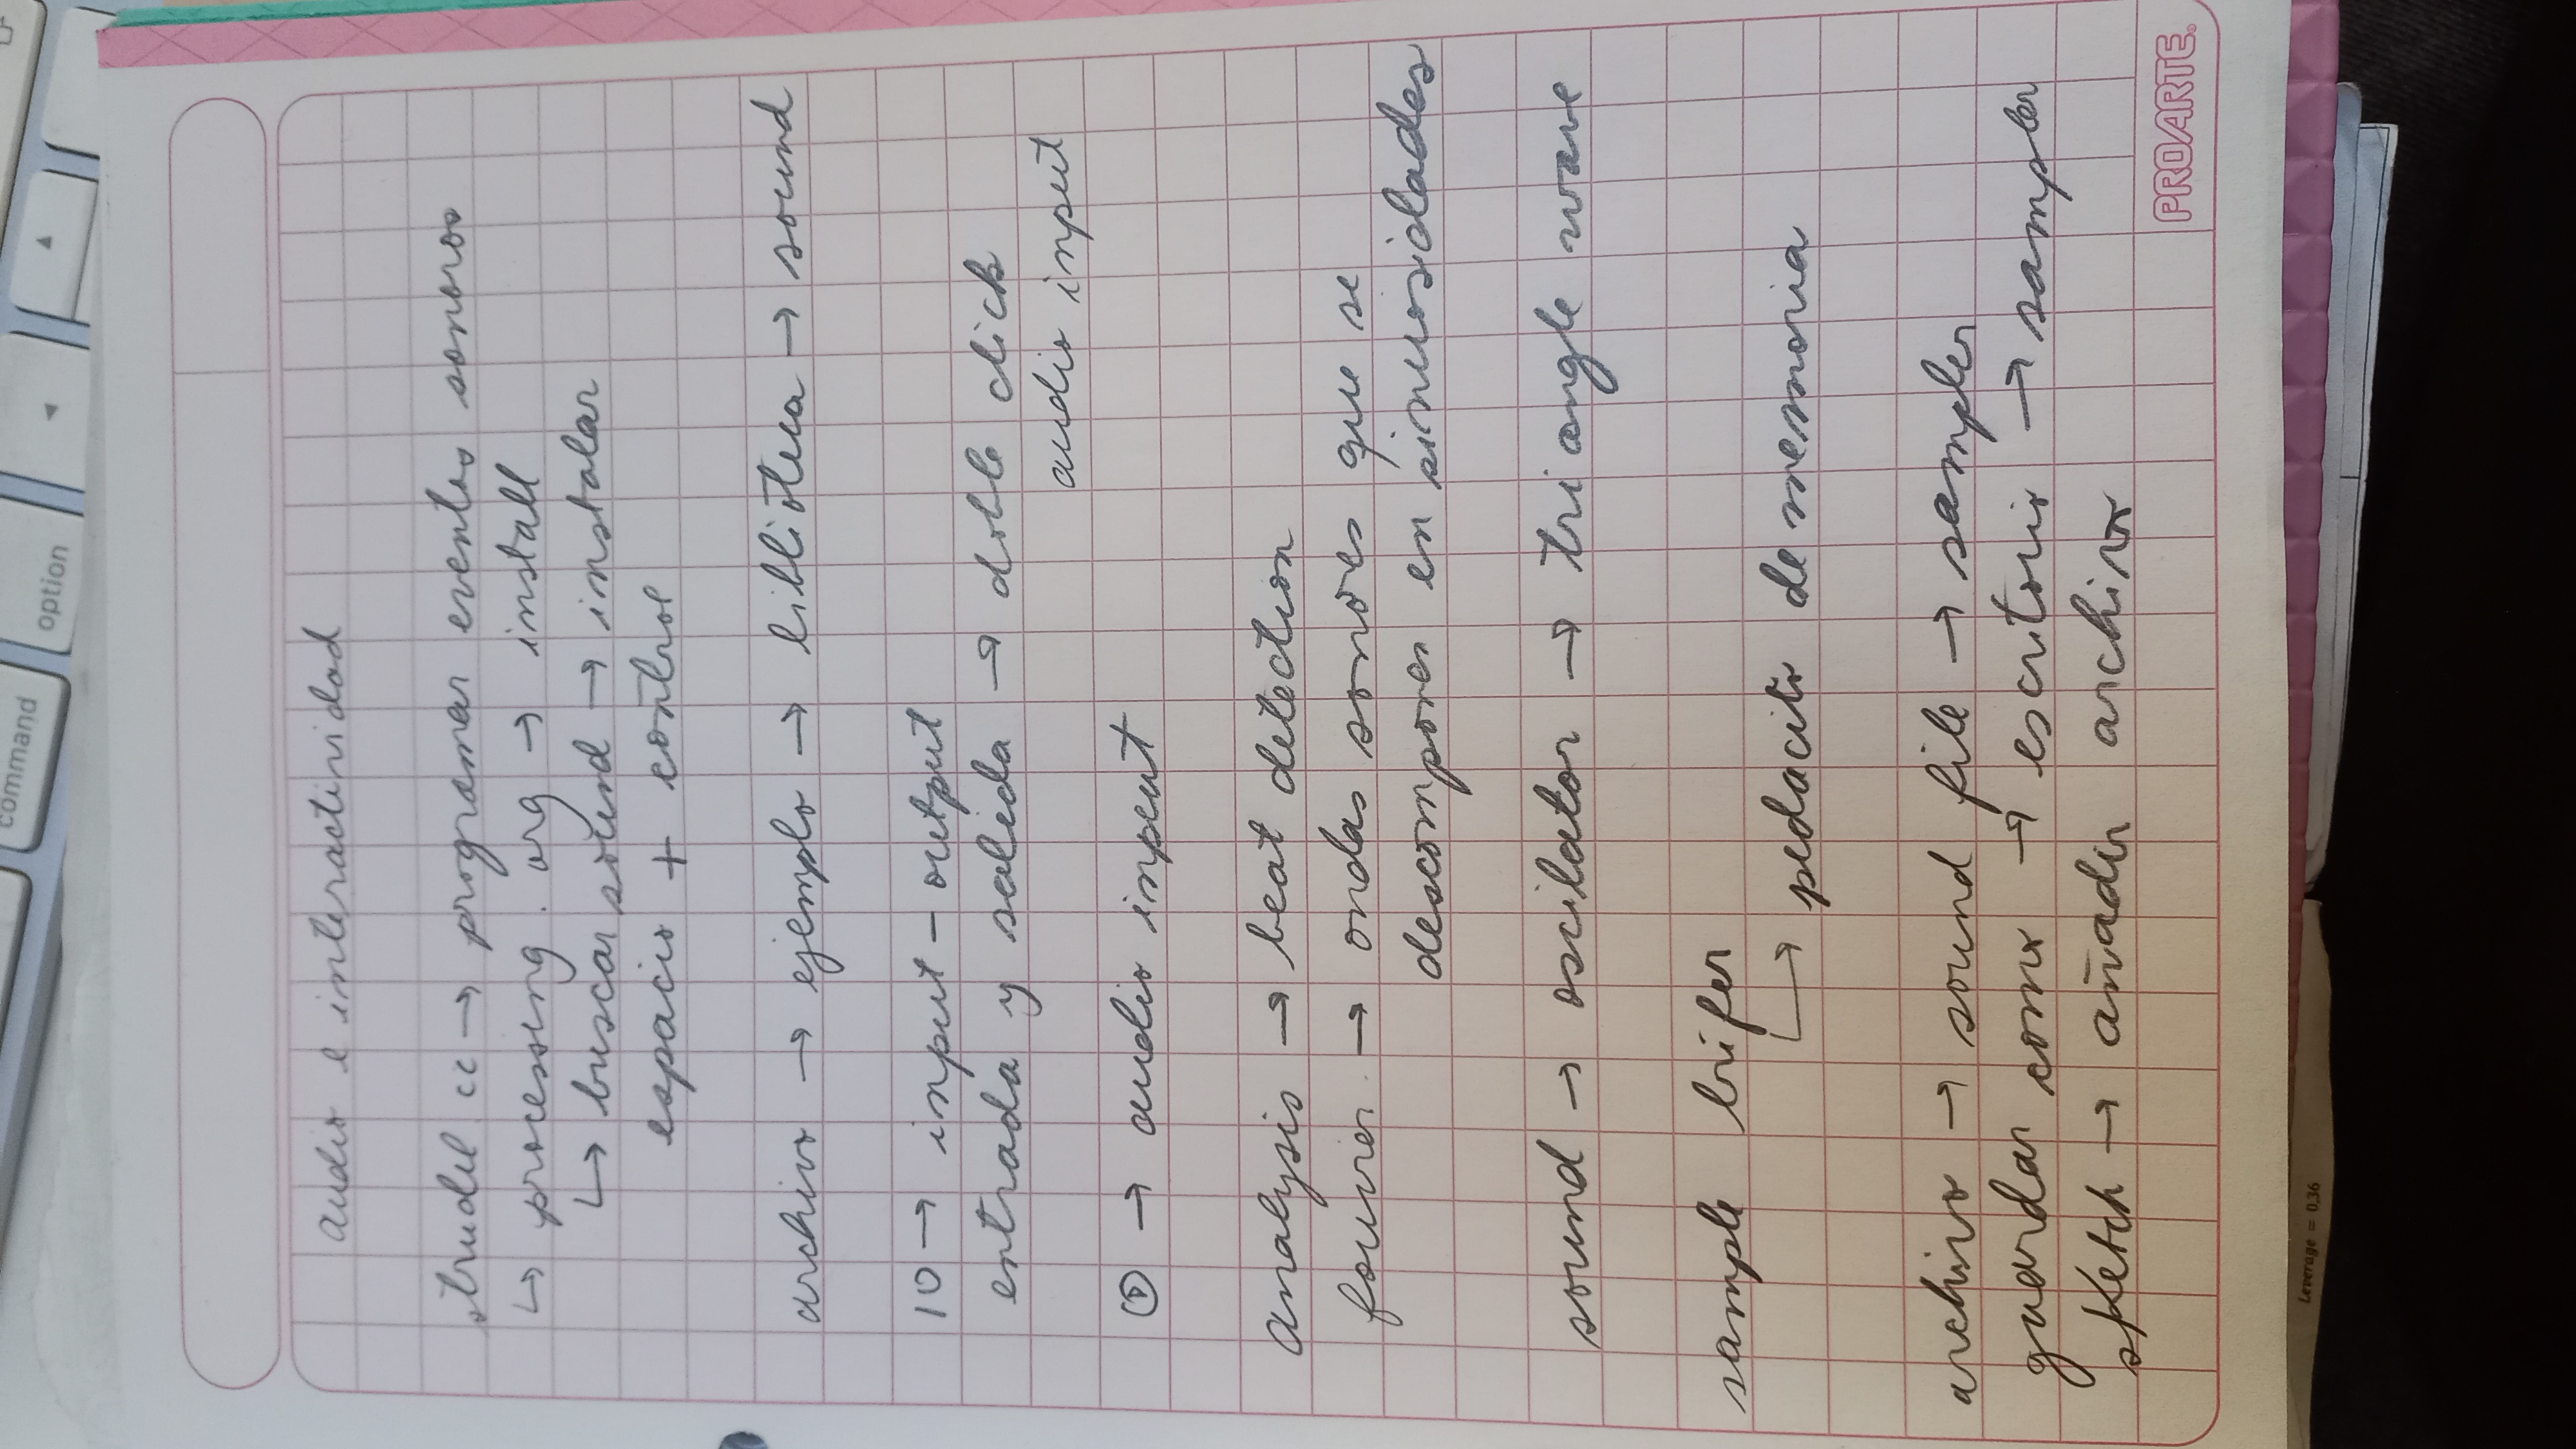 command
option
audio e interactividad
strudel cc → programar eventos sonoros
↳ processing.org → install
↳ buscar sound → instalar
espacio + control
archivo → ejemplo → biblioteca → sound
IO → input - output
entrada y salida → doble click
audio input
▷ → audio input
analysis → beat detection
fourier → ondas sonores que se
descomponen en sinuosidades
sound → oscilator → triangle wave
sample
↳ pedacito de memoria
archivo → sound file → sampler
guardar como → escritorio → sampler
sketch → añadir archivo
PROARTE
Leverage = 0,36